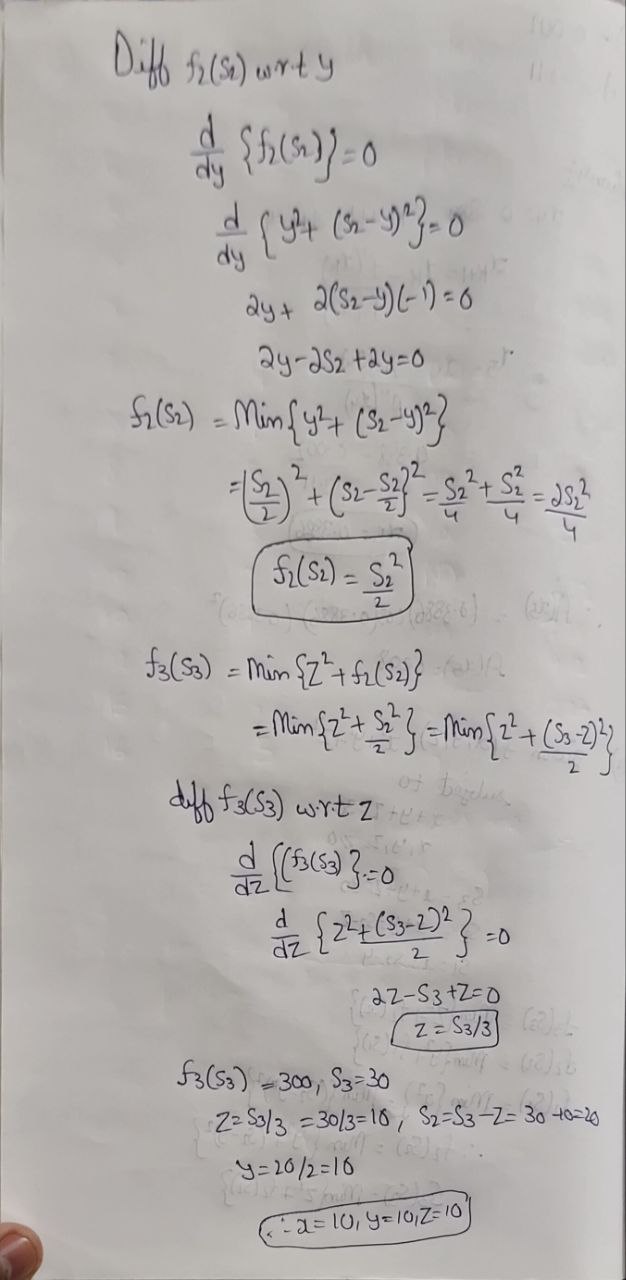 Diff f₂(S₂) w.r.t y
d/dy {f₂(S₂)} = 0
d/dy {y² + (S₂-y)²} = 0
2y + 2(S₂-y)(-1) = 0
2y - 2S₂ + 2y = 0
f₂(S₂) = Min{y² + (S₂-y)²}
= (S₂/2)² + (S₂ - S₂/2)² = S₂²/4 + S₂²/4 = 2S₂²/4
f₂(S₂) = S₂²/2
f₃(S₃) = Min{Z² + f₂(S₂)}
= Min{Z² + S₂²/2} = Min{Z² + (S₃-Z)²/2}
diff f₃(S₃) w.r.t Z
d/dZ {(f₃(S₃)} = 0
d/dZ {Z² + (S₃-Z)²/2} = 0
2Z - S₃ + Z = 0
Z = S₃/3
f₃(S₃) = 300, S₃ = 30
Z = S₃/3 = 30/3 = 10, S₂ = S₃ - Z = 30-10=20
y = 20/2 = 10
∴ x = 10, y = 10, Z = 10